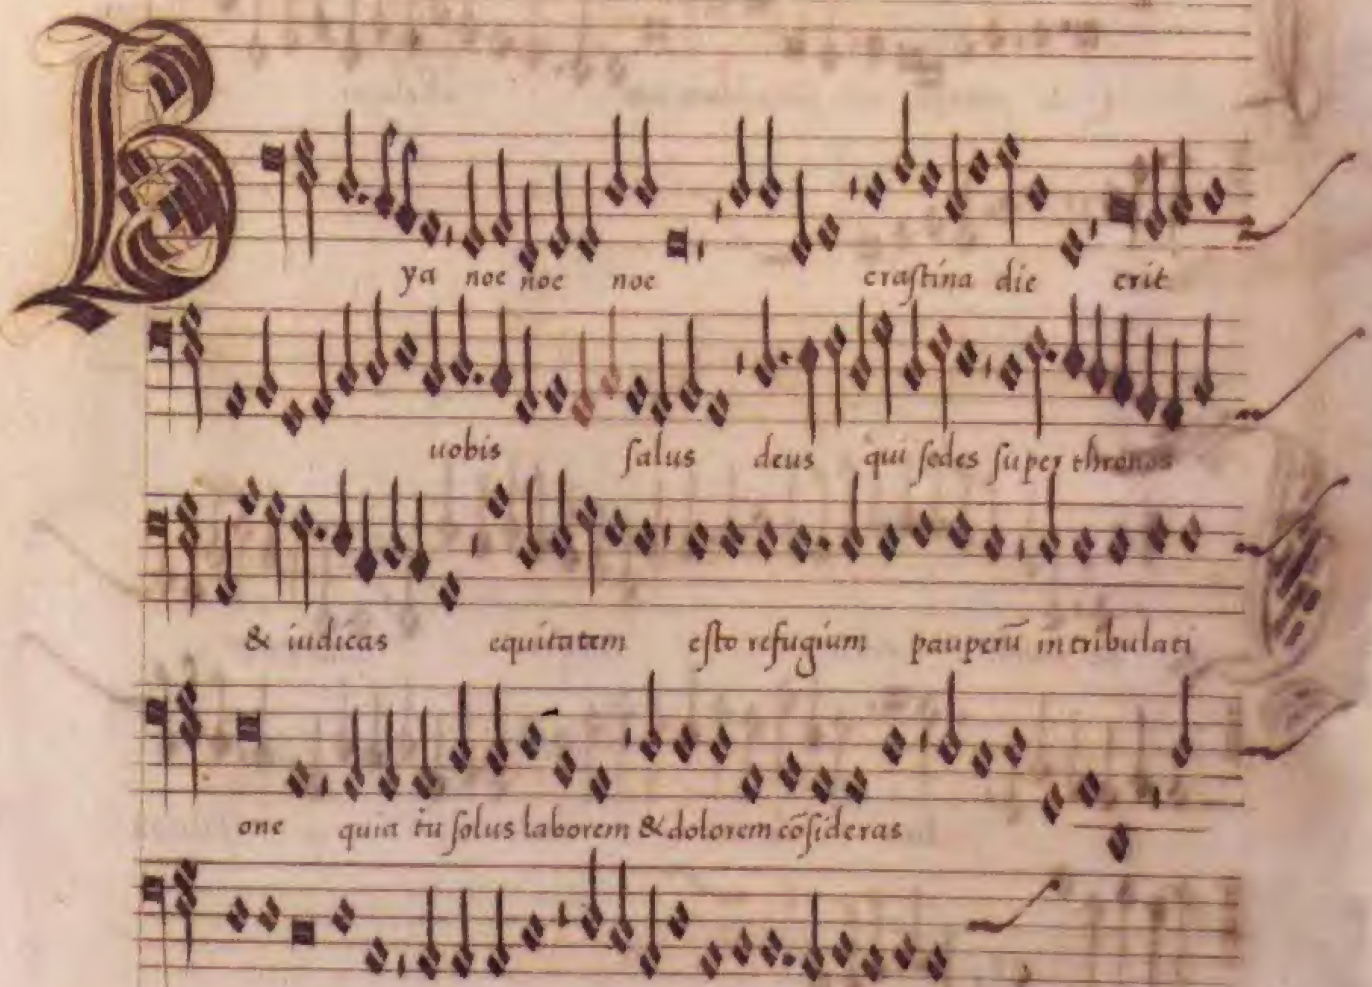 B
ya noe noe noe craſtina die erit
uobis ſalus deus qui ſedes ſuper thronos
& iudicas equitatem eſto refugium pauperū in tribulati
one quia tu ſolus laborem & dolorem cõſideras